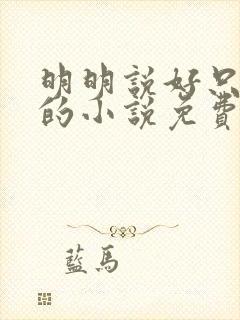 明明說好只
的小說免費
藍馬